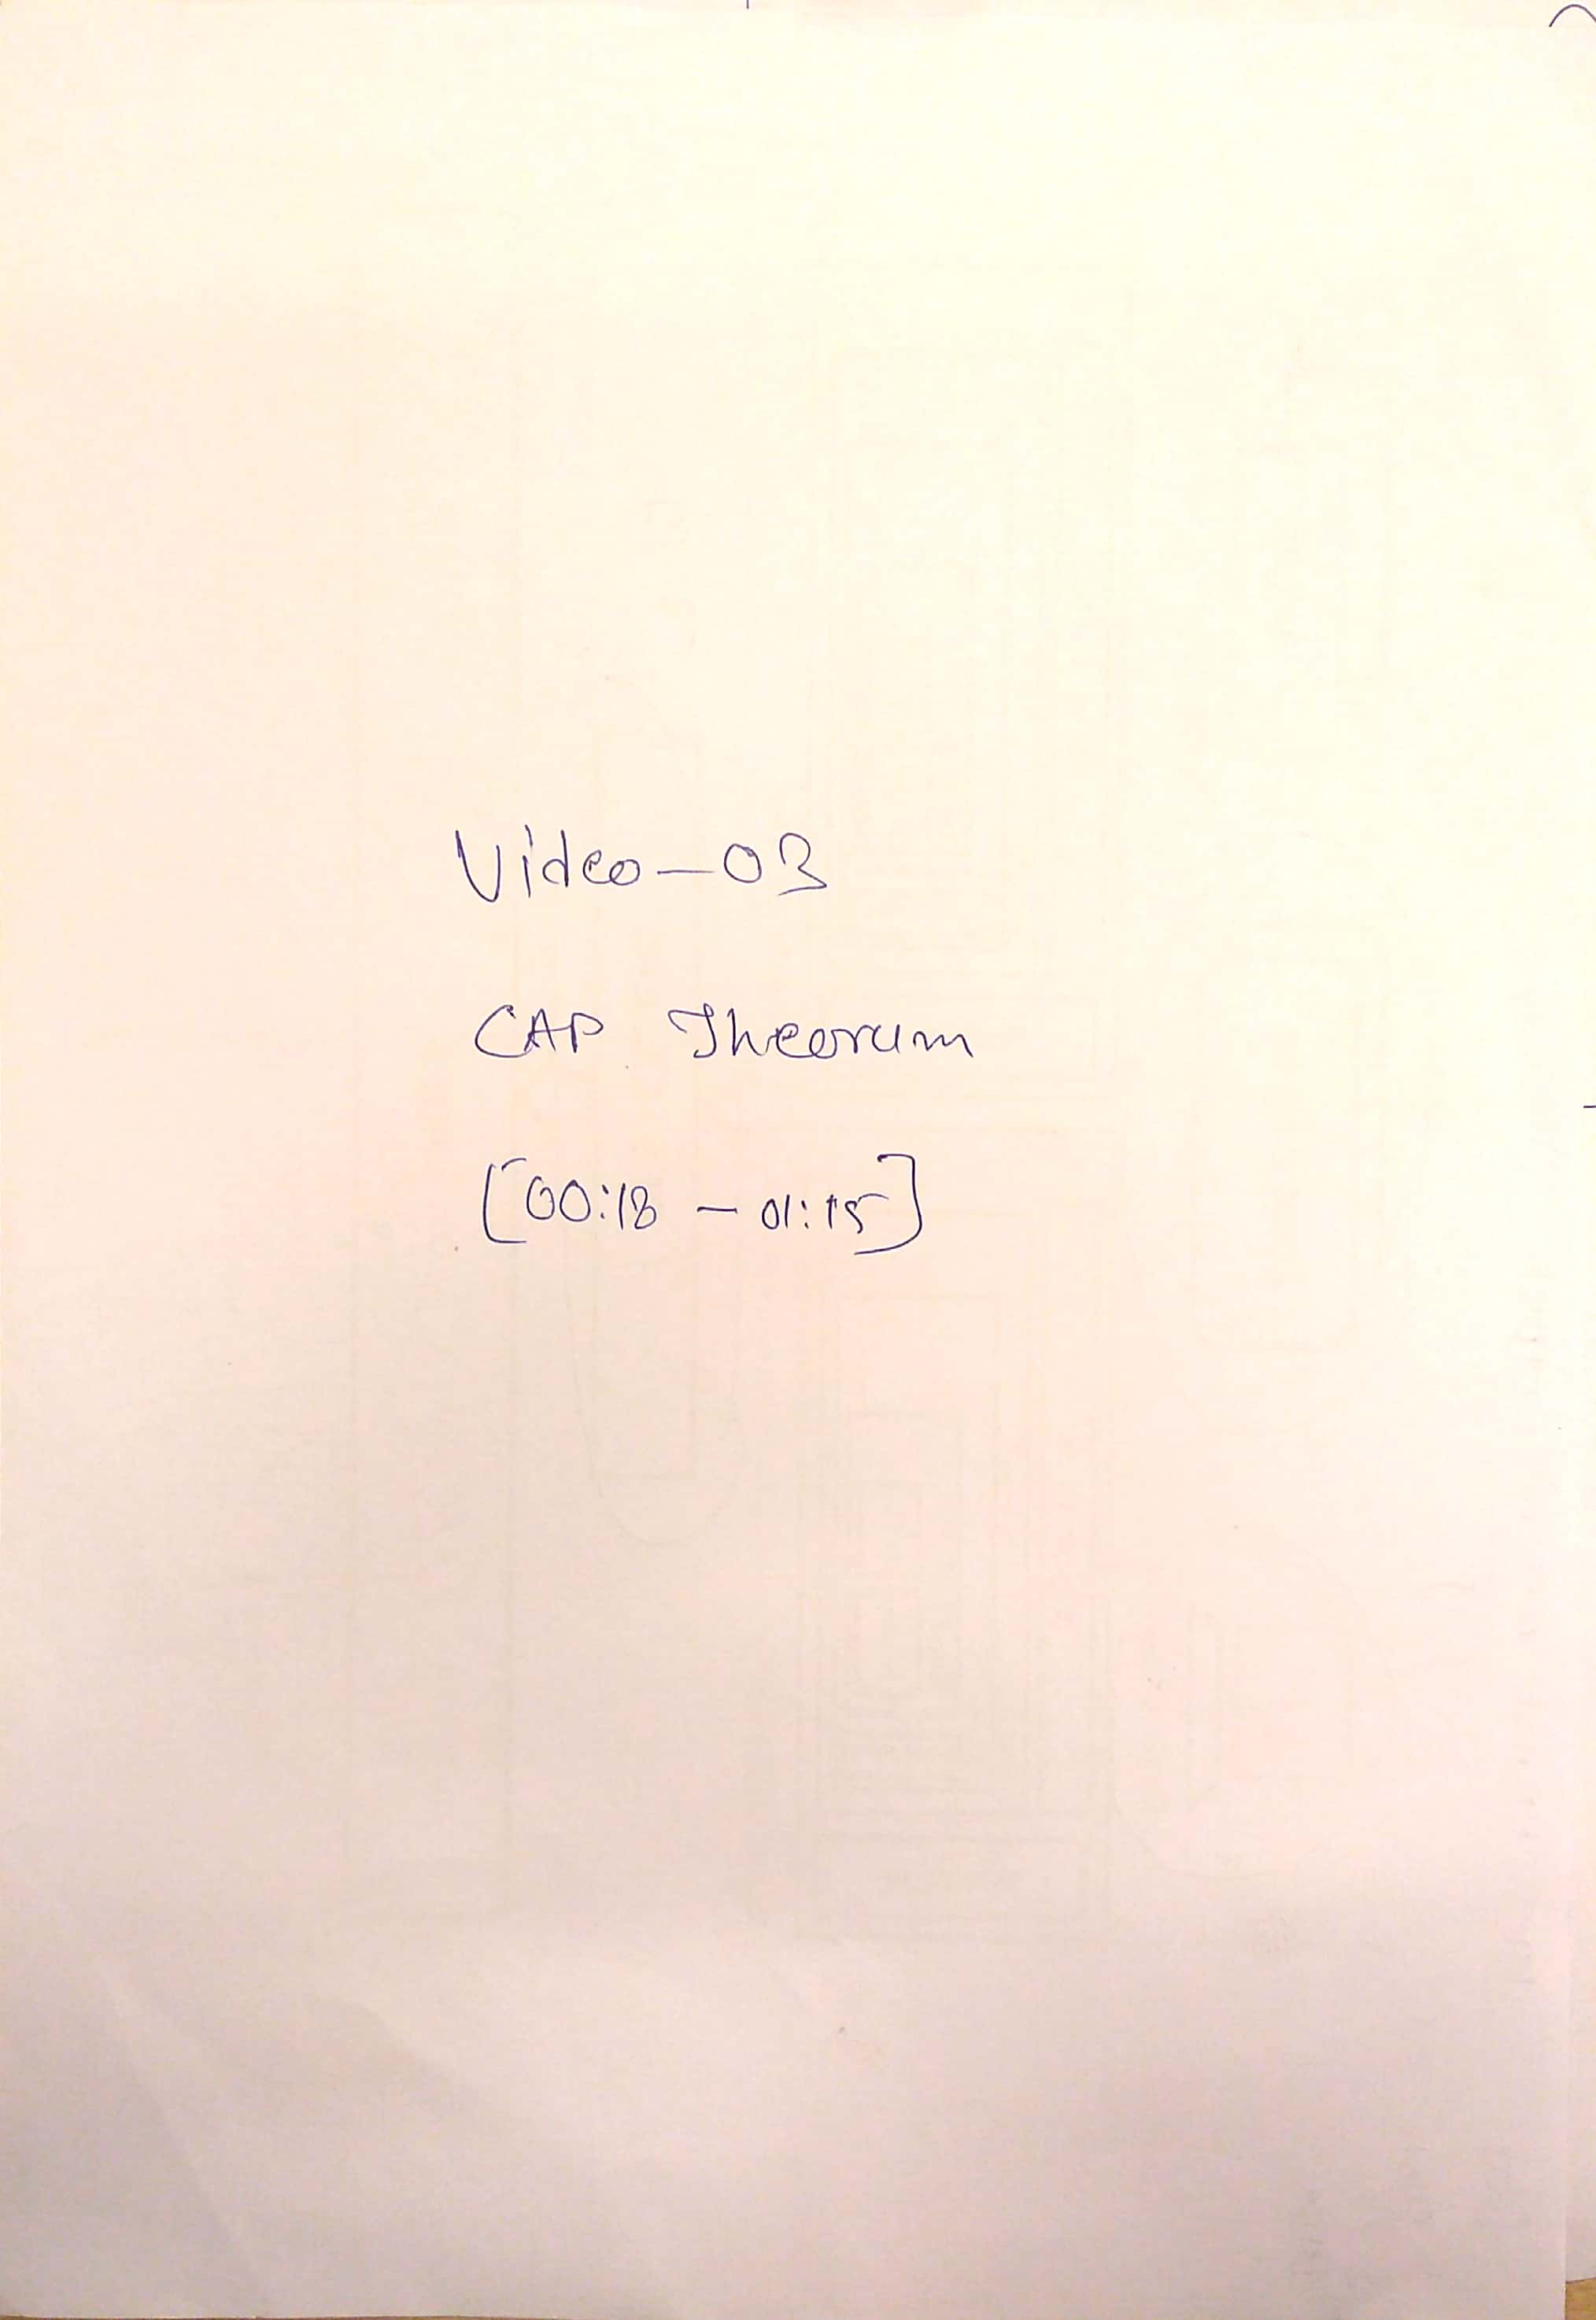 Video-03
CAP Theorum
[00:18 - 01:15]